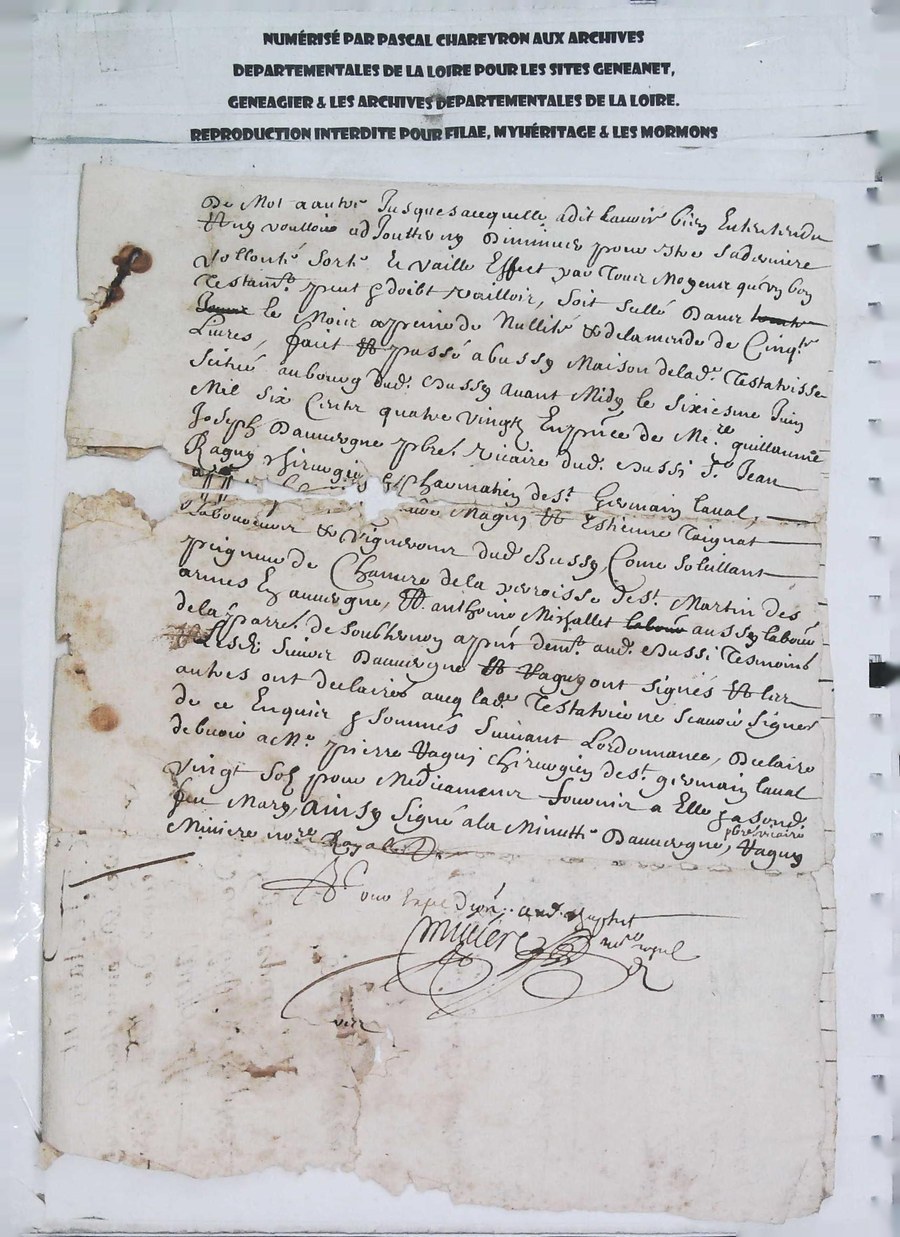 NUMÉRISÉ PAR PASCAL CHAREYRON AUX ARCHIVES
DEPARTEMENTALES DE LA LOIRE POUR LES SITES GENEANET,
GENEAGIER & LES ARCHIVES DEPARTEMENTALES DE LA LOIRE.
REPRODUCTION INTERDITE POUR FILAE, MYHÉRITAGE & LES MORMONS
De Mot a autre Jusques a laquelle a dit bien Entendu
voulloir ad Joutter ny Diminuer pour sa derniere
vollonté Sorte Et vaille Effect par tour Moyenr qu'un bon
Testamt peut & doibt vailloir, soit sellé Danr
le Moir a peine de Nullité & de lamende de Cinqte
Liures, fait & passé a bussy Maison de lad. Testatrisse
Scitué au bourg dud. Bussy auant Midy le sixiesme Juin
Mil six Centr quatre vingtz En pñce de Me guillaume
Joseph Dauuergne pbre. vicaire dud. Bussi Sr Jean
Raguy chirurgie de St Germain laual,
Maguy & Estienne Taignat
Laboureur & vigneronr dud Bussy, Come
peigneur de Chanure de la parroisse de St. Martin des
armes En auuergne, & anthoine Missallet labour aussy labour
de la parre. de Souternon a pñt demt. aud. Bussi Tesmoins
Lesd. Sieurr Dauuergne & Vaguy ont signés & ler
autres ont declairés aueq lade Testatrice ne scauoir signer
de ce Enquir & Sommés Suiuant Lordonnance, Declaire
debuoir a Me pierre Vaguy Chirurgien de st germain laual
vingt solz pour Medicamenr fournir a Elle & a sond.
feu Mary, ainsy Signé a la Minutte Dauuergne, pbre vicaire Vaguy
Miniere nore Royal
Pour Expedion
miniere nore royal